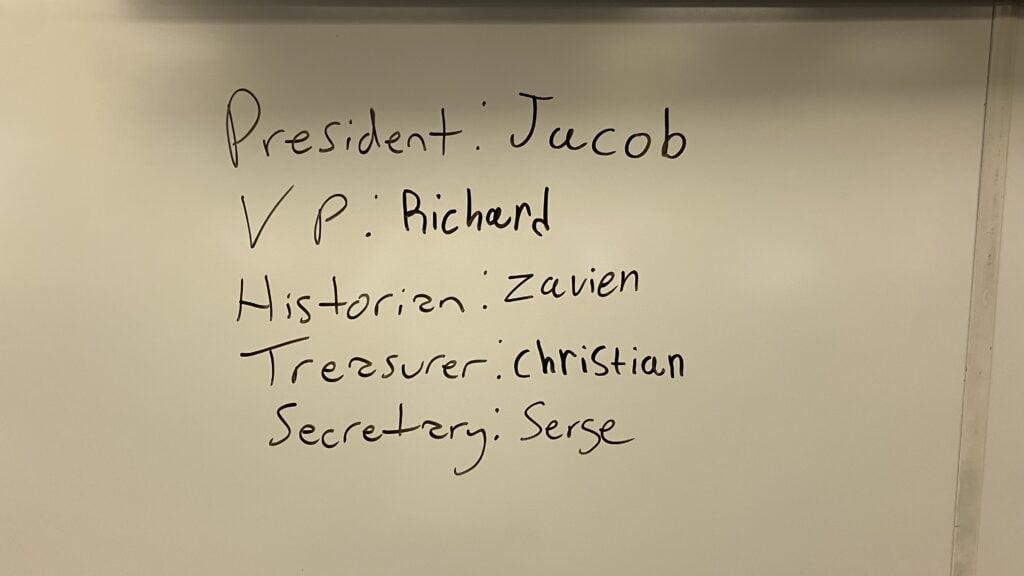 President: Jacob
VP: Richard
Historian: Zavien
Treasurer: Christian
Secretary: Serge